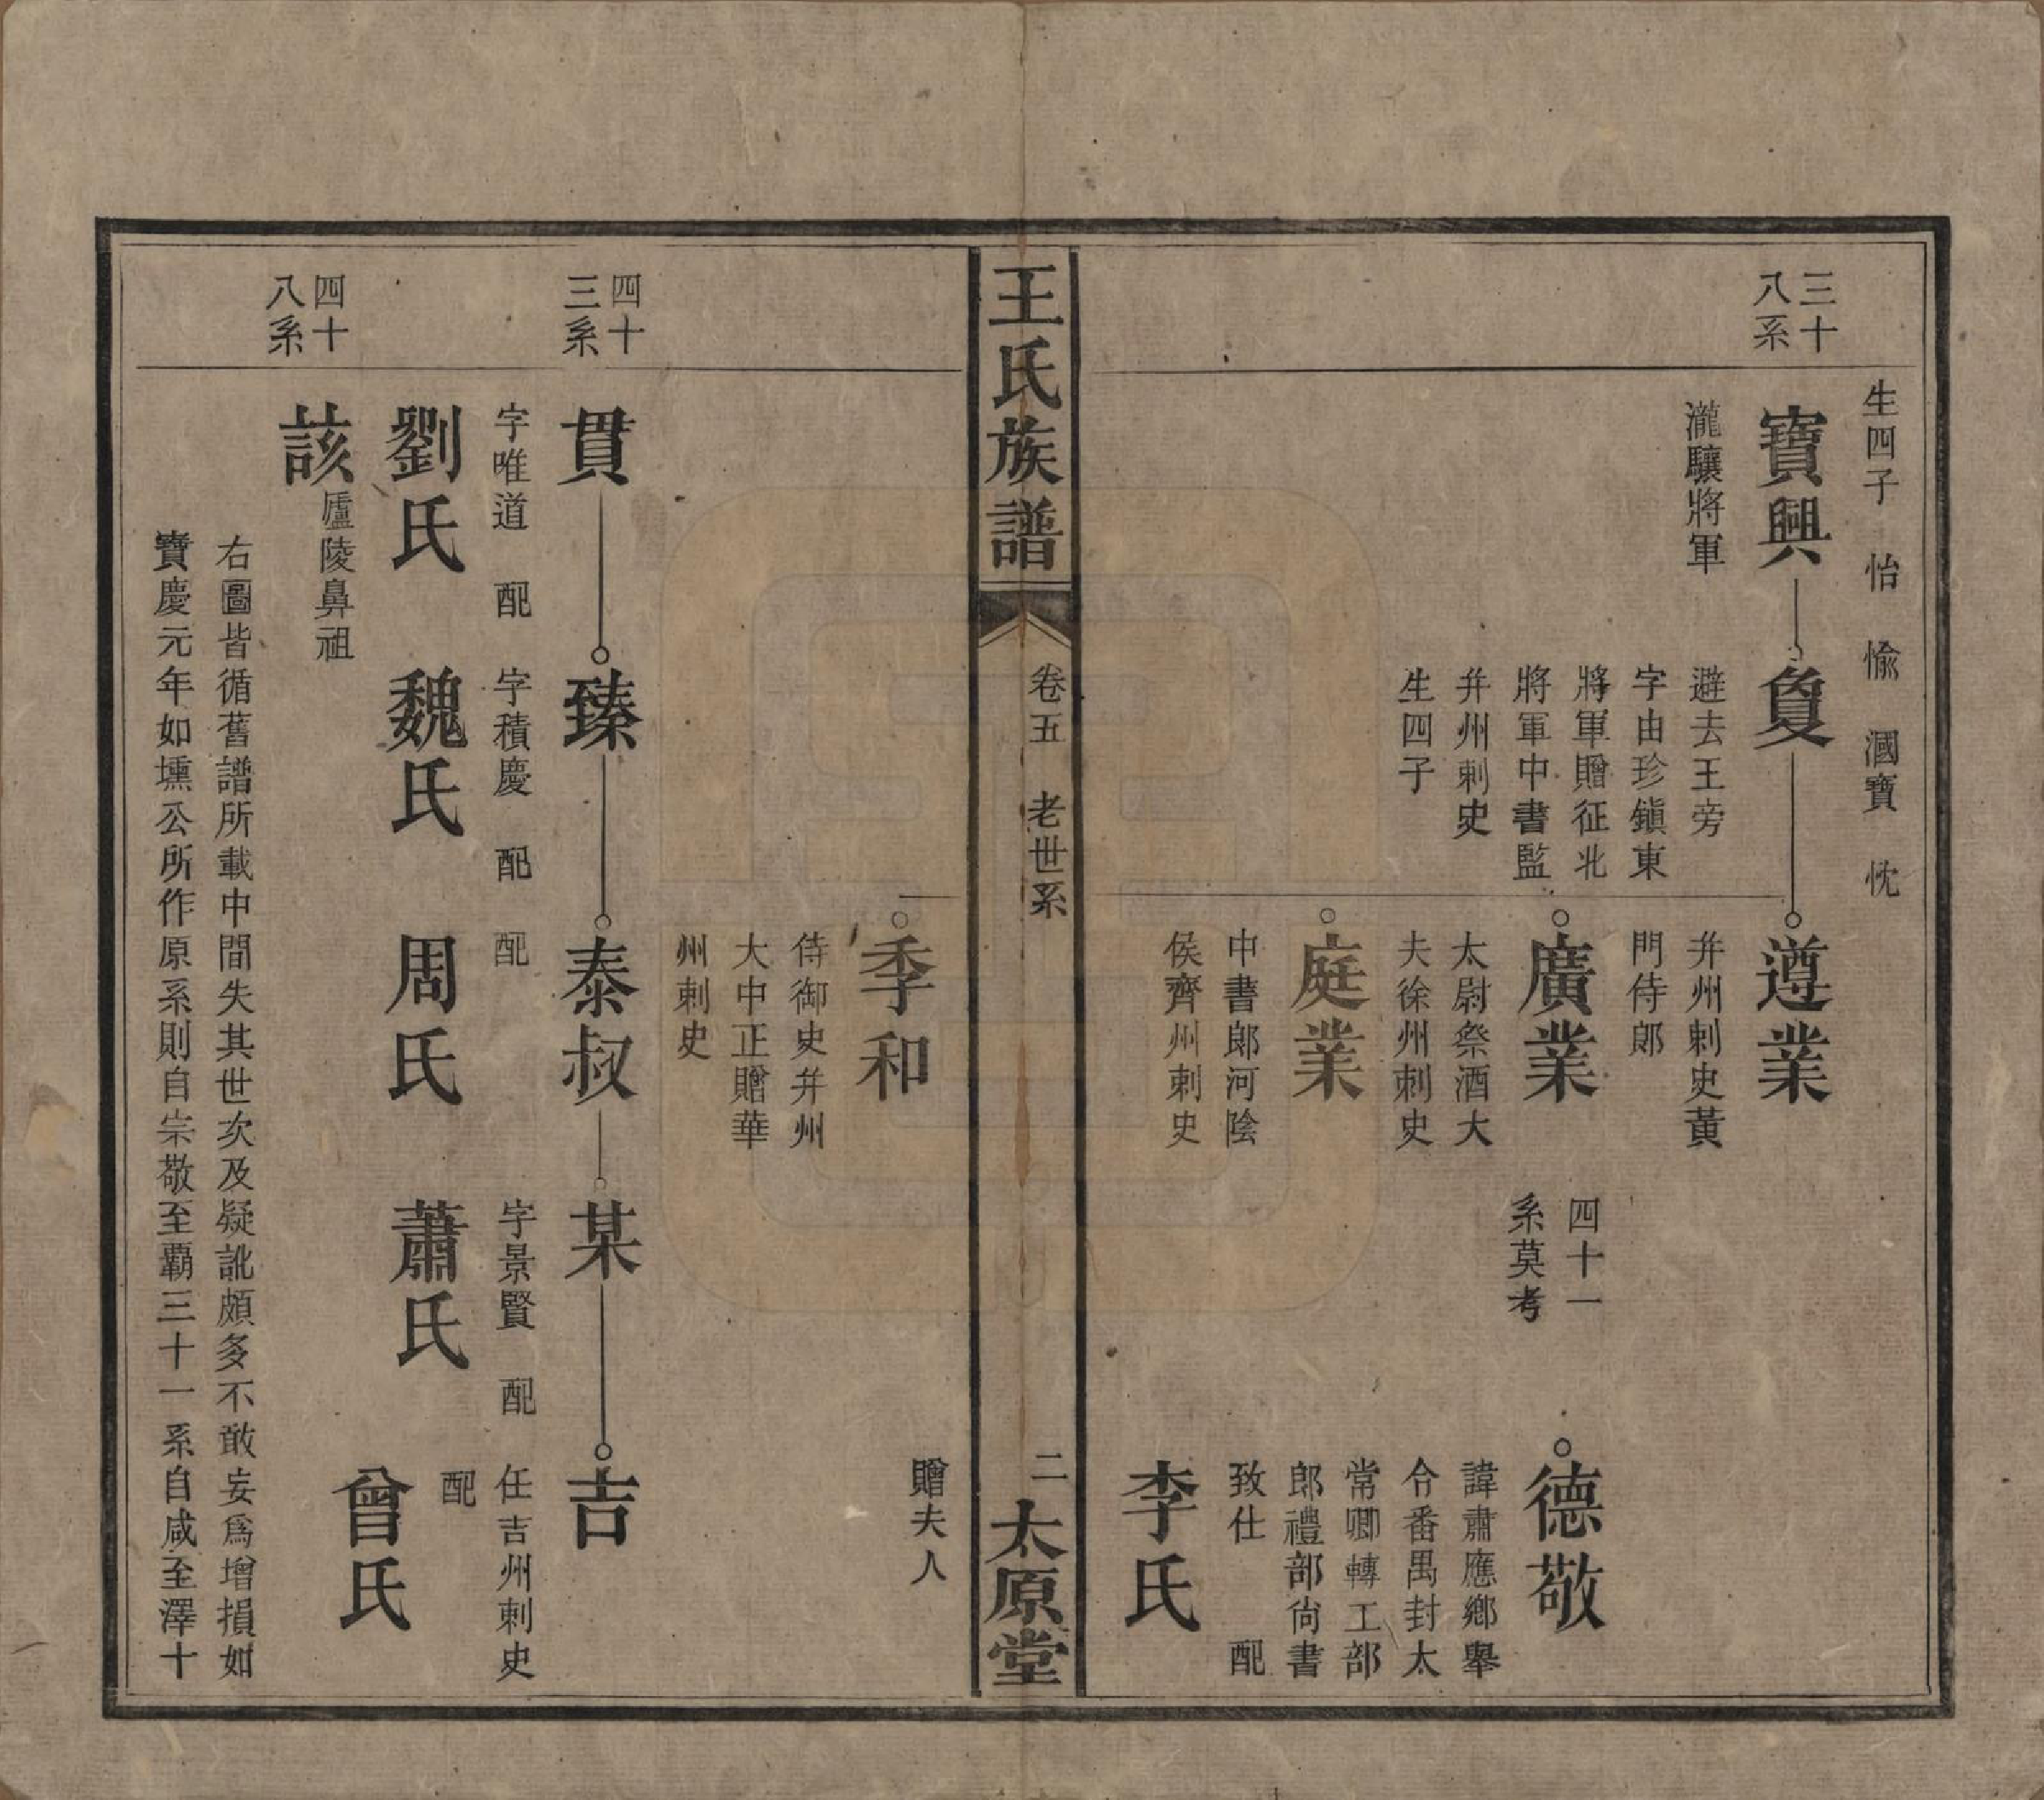 生四子　怡　愉　國寶　忱
三十
八系
寶興
瀧驤將軍
負
避去王旁
字由珍鎮東
將軍贈征北
將軍中書監
幷州刺史
生四子
遵業
幷州刺史黃
門侍郎
廣業
太尉祭酒大
夫徐州刺史
庭業
中書郎河陰
侯齊州刺史
四十一
系莫考
德敬
諱肅應鄉舉
令番禺封太
常卿轉工部
郎禮部尙書
致仕　配
李氏
王氏族譜
卷五　老世系
二
太原堂
贈夫人
季和
侍御史幷州
大中正贈華
州刺史
四十
三系
貫
字唯道　配
劉氏
臻
字積慶　配
魏氏
泰叔
配
周氏
某
字景賢　配
蕭氏
吉
任吉州刺史
配
曾氏
四十
八系
該
廬陵鼻祖
右圖皆循舊譜所載中間失其世次及疑訛頗多不敢妄爲增損如
寶慶元年如壎公所作原系則自宗敬至覇三十一系自咸至澤十